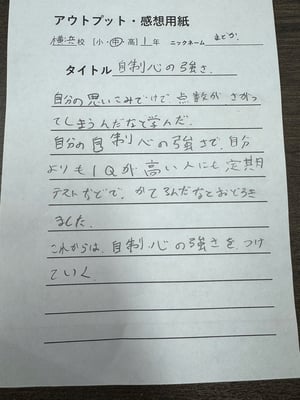 アウトプット・感想用紙
横浜校 [小・中・高] 1年 ニックネーム まどか
タイトル 自制心の強さ.
自分の思いこみだけで点数がさがっ
てしまうんだなて学んだ.
自分の自制心の強さで、自分
よりもIQが高い人にも定期
テストなどで、かてるんだなとおどろき
ました.
これからは、自制心の強さを、つけ
ていく